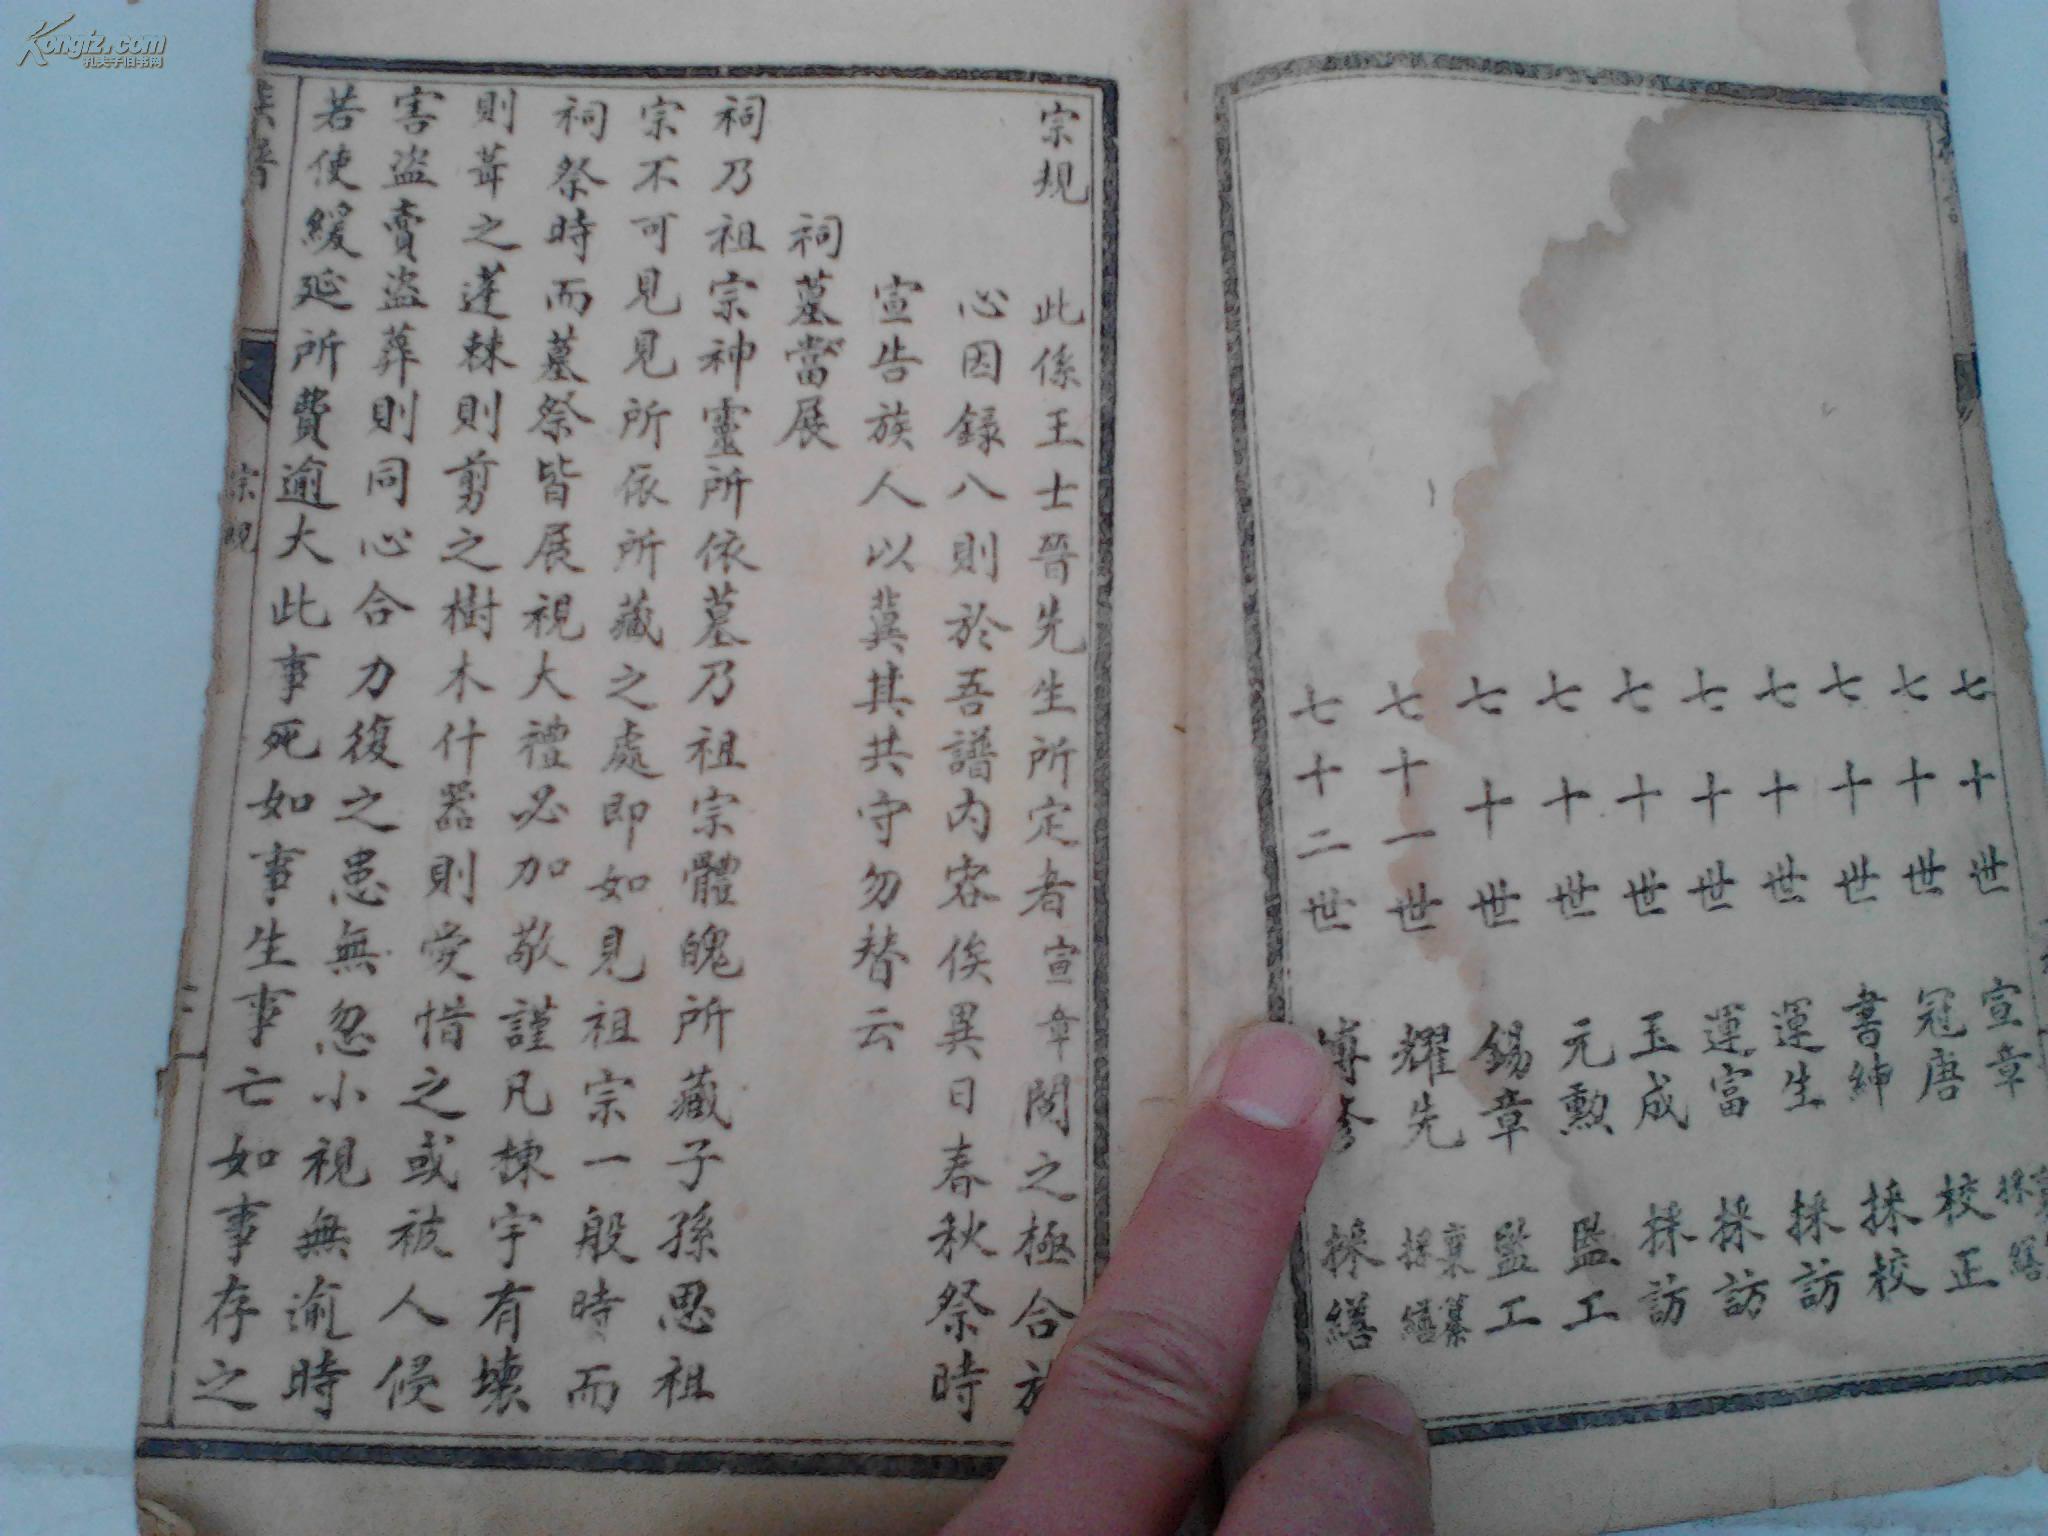 Kongfz.com
孔夫子旧书网
七十世 宣章 採 繕
七十世 冠唐 校正
七十世 書紳 採校
七十世 運生 採訪
七十世 運富 採訪
七十世 玉成 採訪
七十世 元勲 監工
七十世 錫章 監工
七十一世 耀先 稟纂 採繕
七十二世 採繕
宗規 此係王士晉先生所定者宣章閱之極合
心因録八則於吾譜内容俟異日春秋祭時
宣告族人以冀其共守勿替云
祠墓當展
祠乃祖宗神靈所依墓乃祖宗體魄所藏子孫思祖
宗不可見見所依所藏之處即如見祖宗一般時而
祠祭時而墓祭皆展視大禮必加敬謹凡棟宇有壊
則葺之蓬棘則剪之樹木什器則愛惜之或被人侵
害盗賣盗葬則同心合力復之患無忽小視無逾時
若使緩延所費逾大此事死如事生事亡如事存之
族譜 宗規